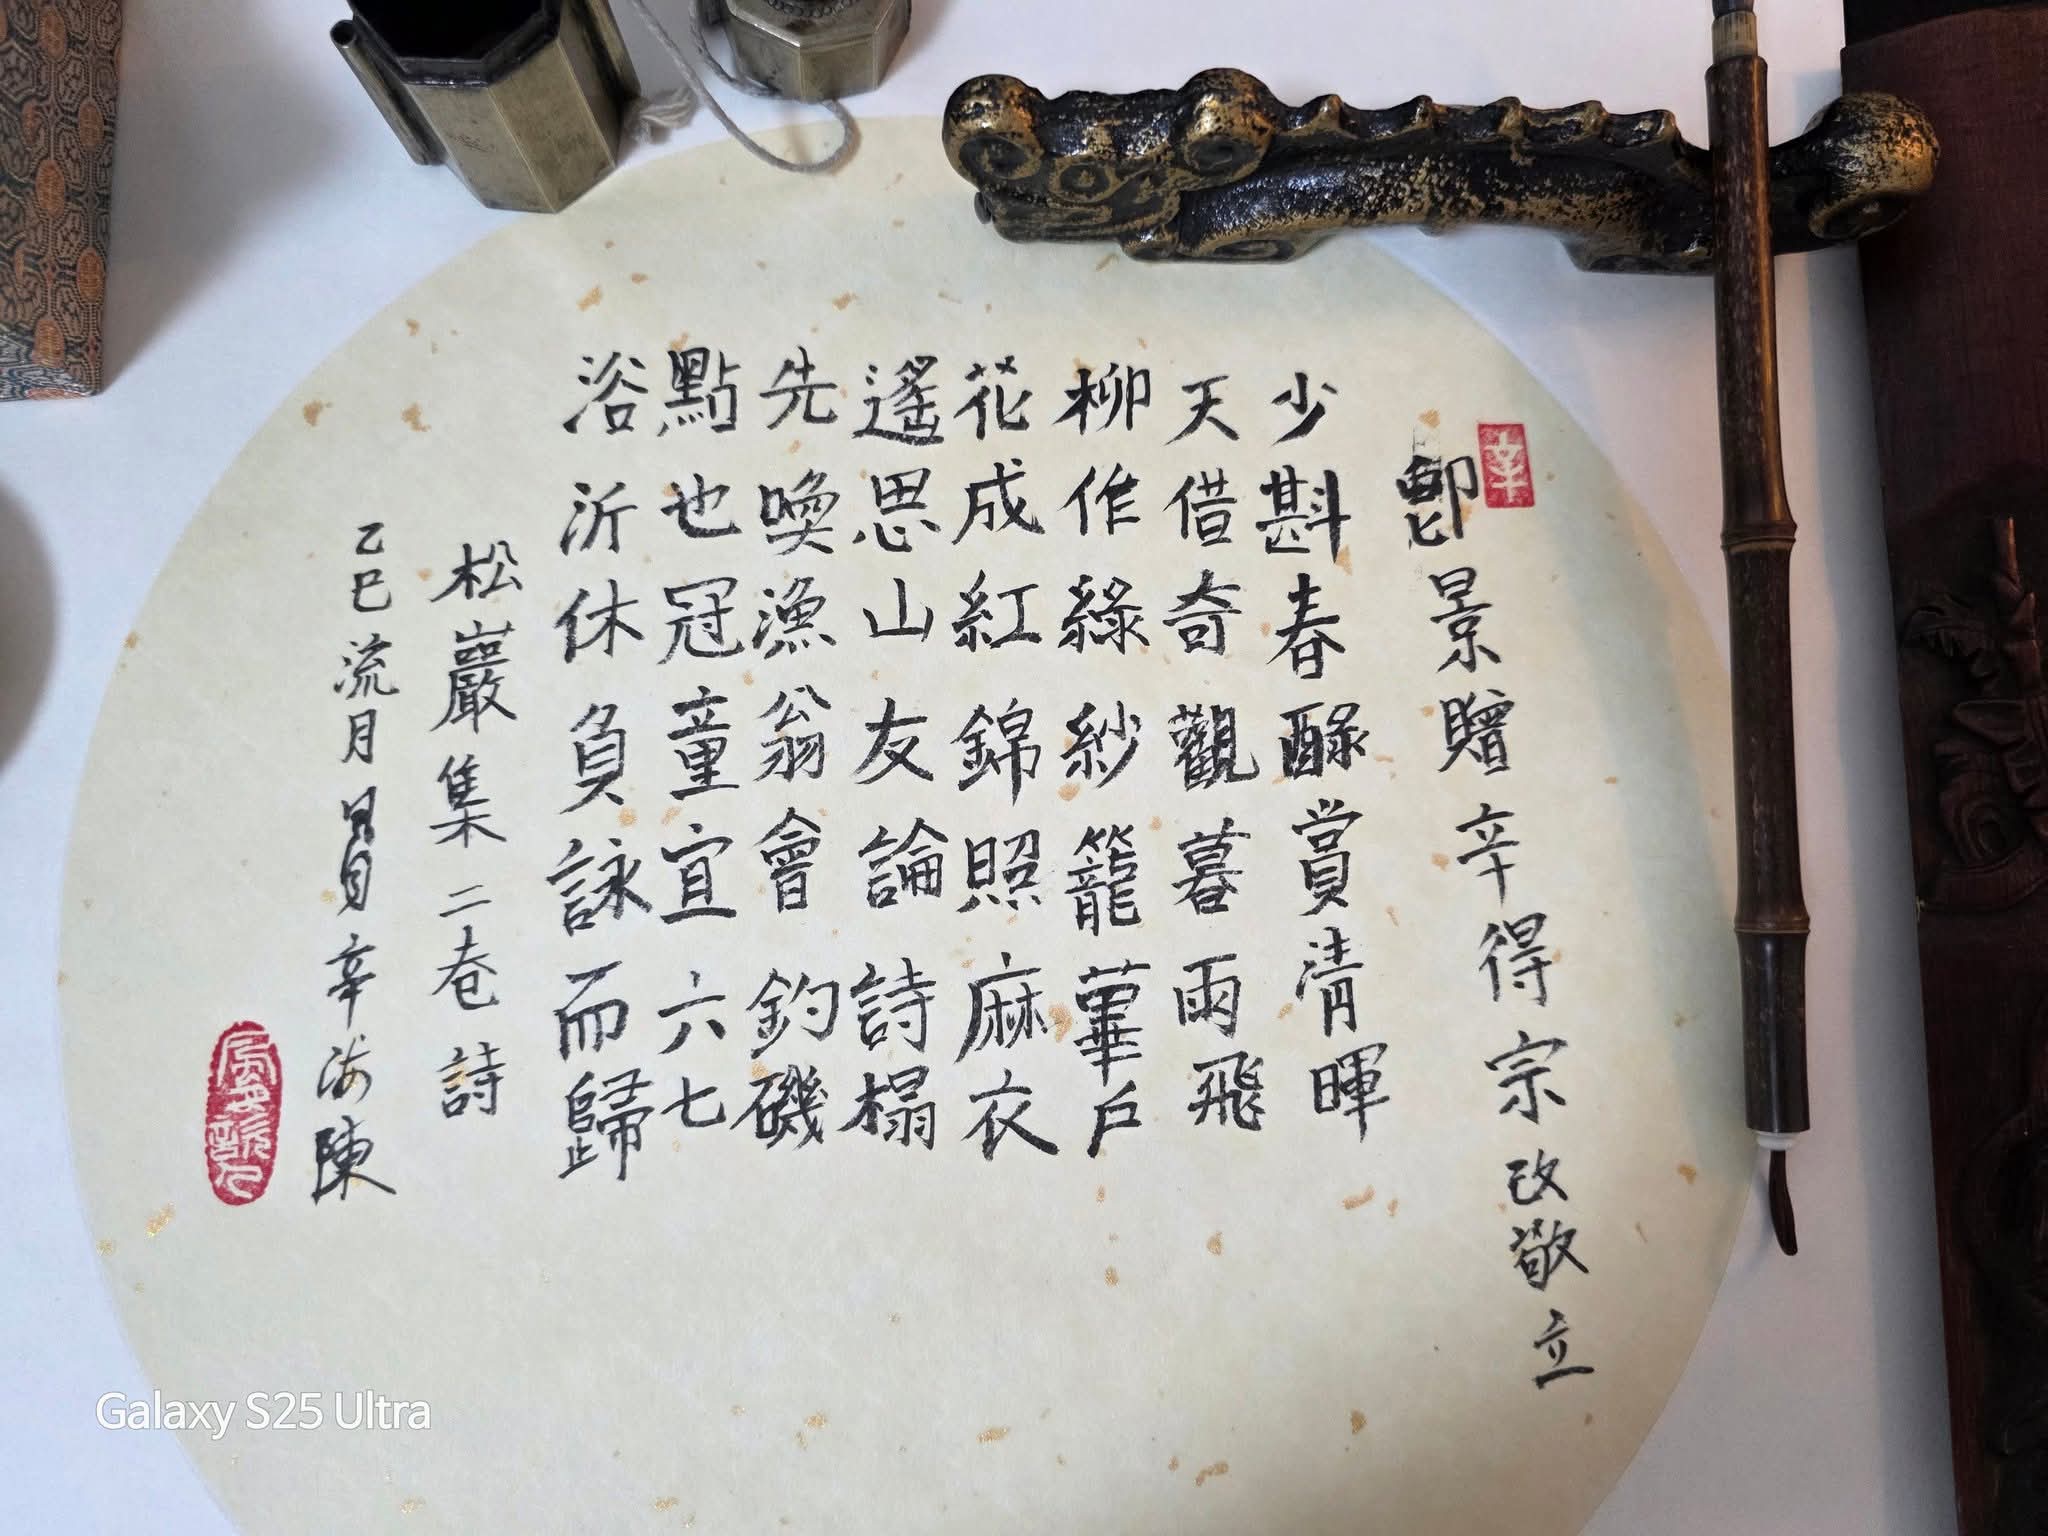 卽景贈辛得宗改敬立
少斟春醁賞清暉
天借奇觀暮雨飛
柳作綠紗籠蓽戶
花成紅錦照麻衣
遙思山友論詩榻
先喚漁翁會釣磯
點也冠童宜六七
浴沂休負詠而歸
松巖集二卷詩
乙巳流月 辛海陳
辛
Galaxy S25 Ultra